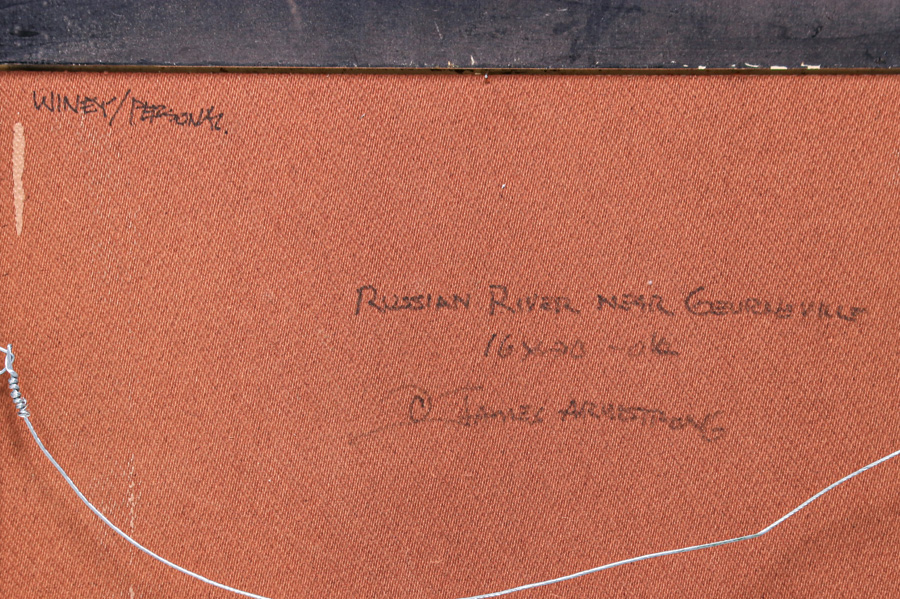 WINEY/PERSONAL
RUSSIAN RIVER NEAR GEURNEVILLE
16x20 - ok
© JAMES ARMSTRONG